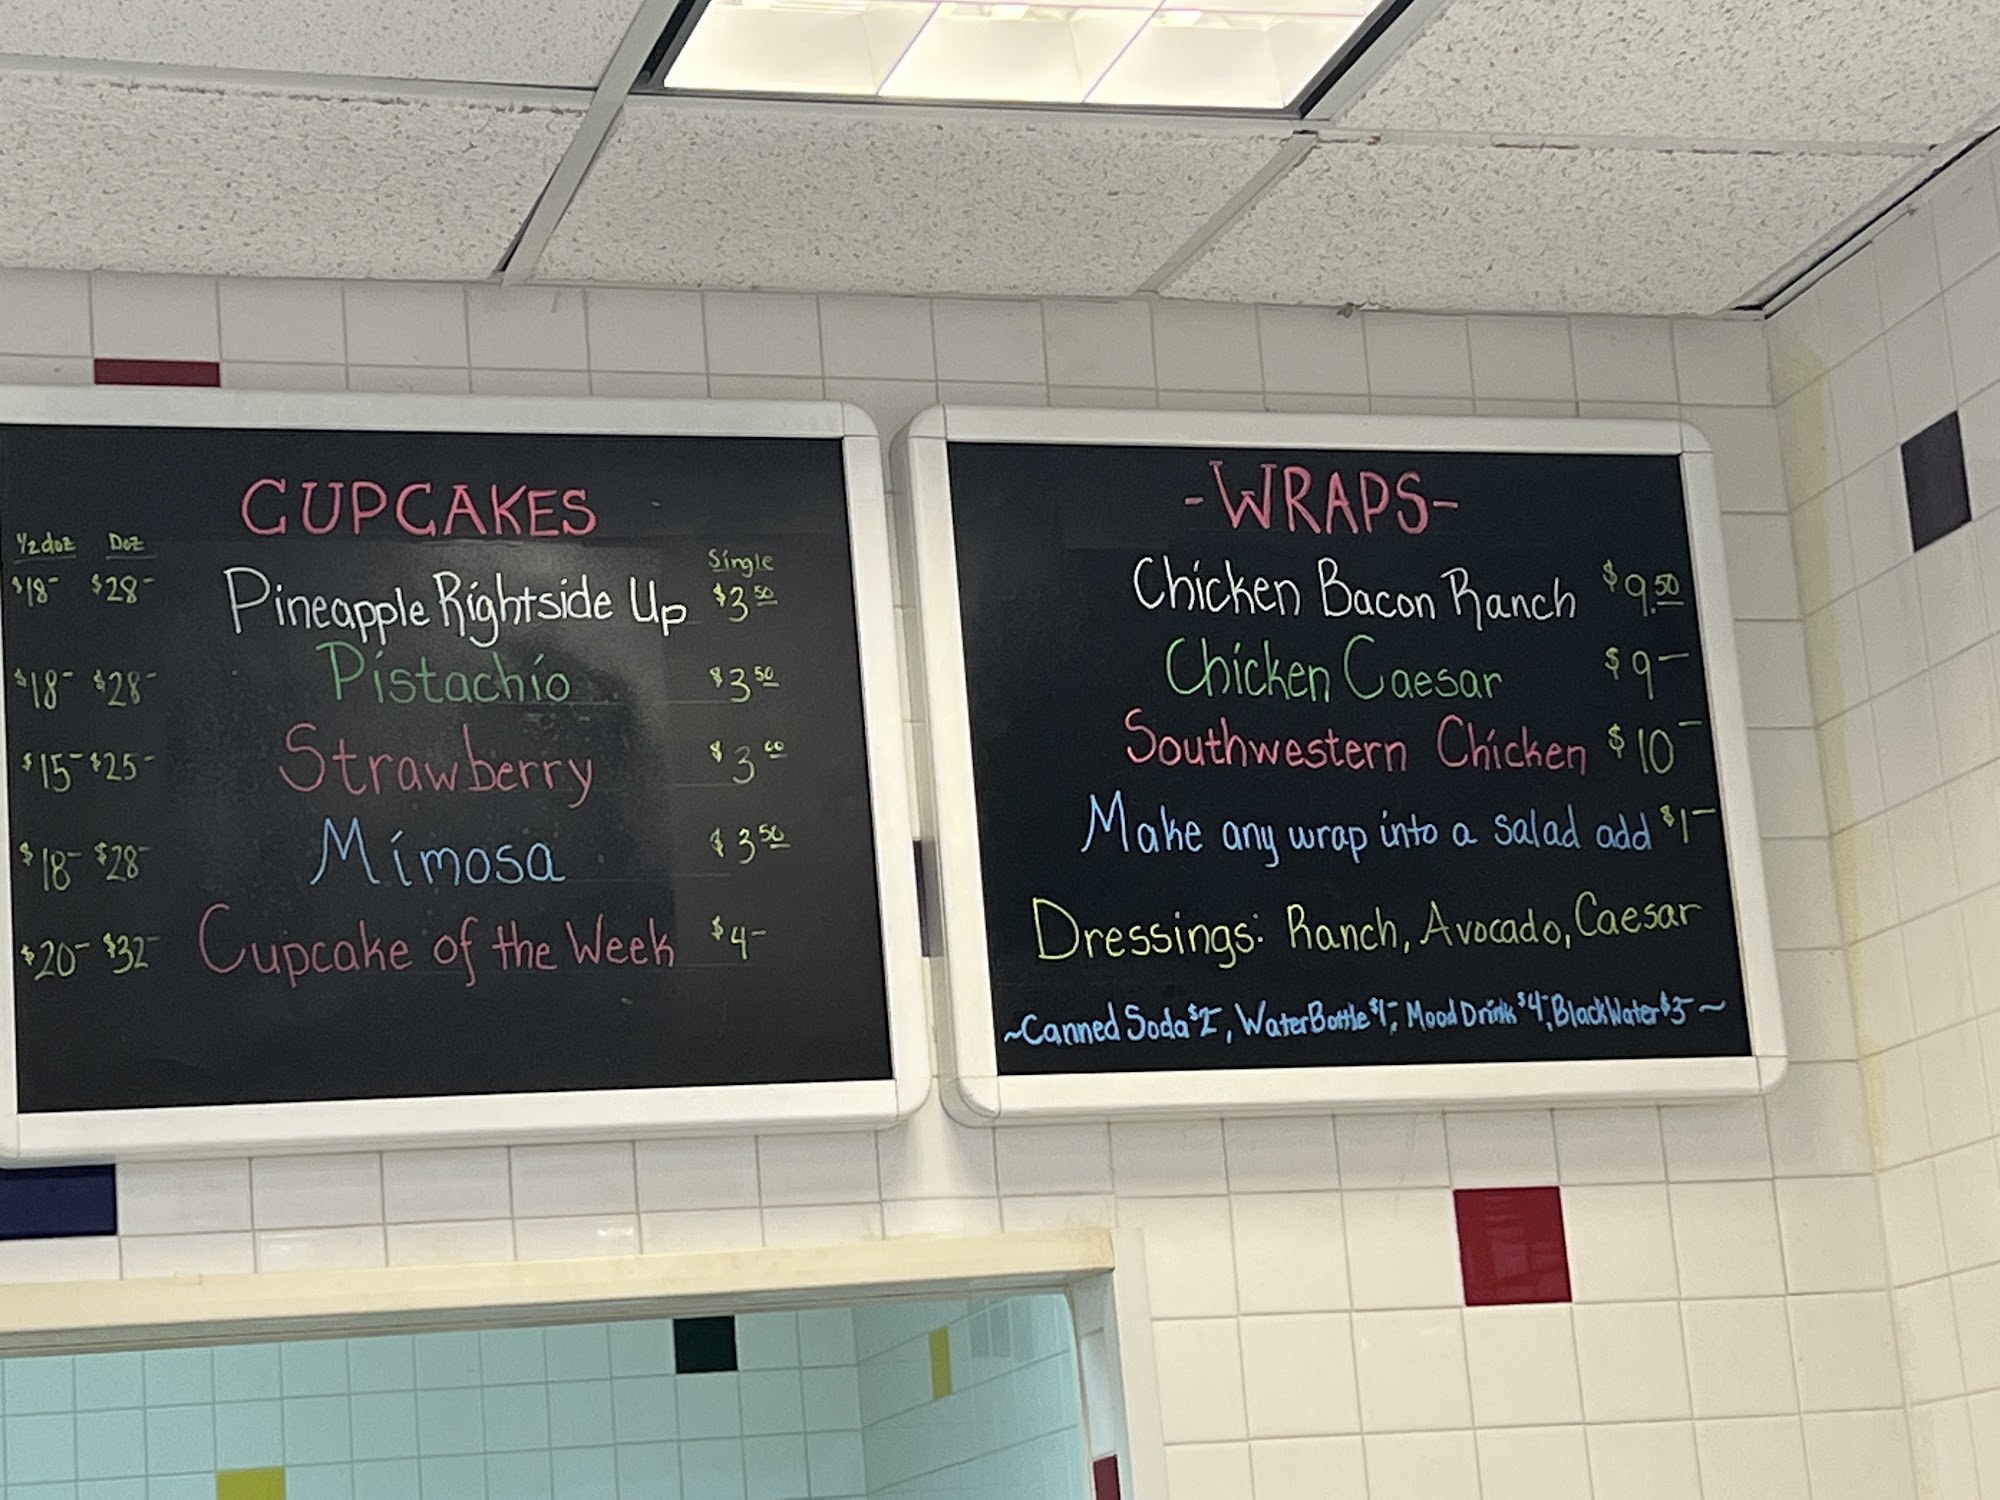 CUPCAKES
1/2 doz Doz Single
$18- $28- Pineapple Rightside Up $3.50
$18- $28- Pistachio $3.50
$15- $25- Strawberry $3.00
$18- $28- Mimosa $3.50
$20- $32- Cupcake of the Week $4-
-WRAPS-
Chicken Bacon Ranch $9.50
Chicken Caesar $9-
Southwestern Chicken $10-
Make any wrap into a salad add $1-
Dressings: Ranch, Avocado, Caesar
~Canned Soda $2-, Water Bottle $1-, Mood Drink $4-, Black Water $3-~